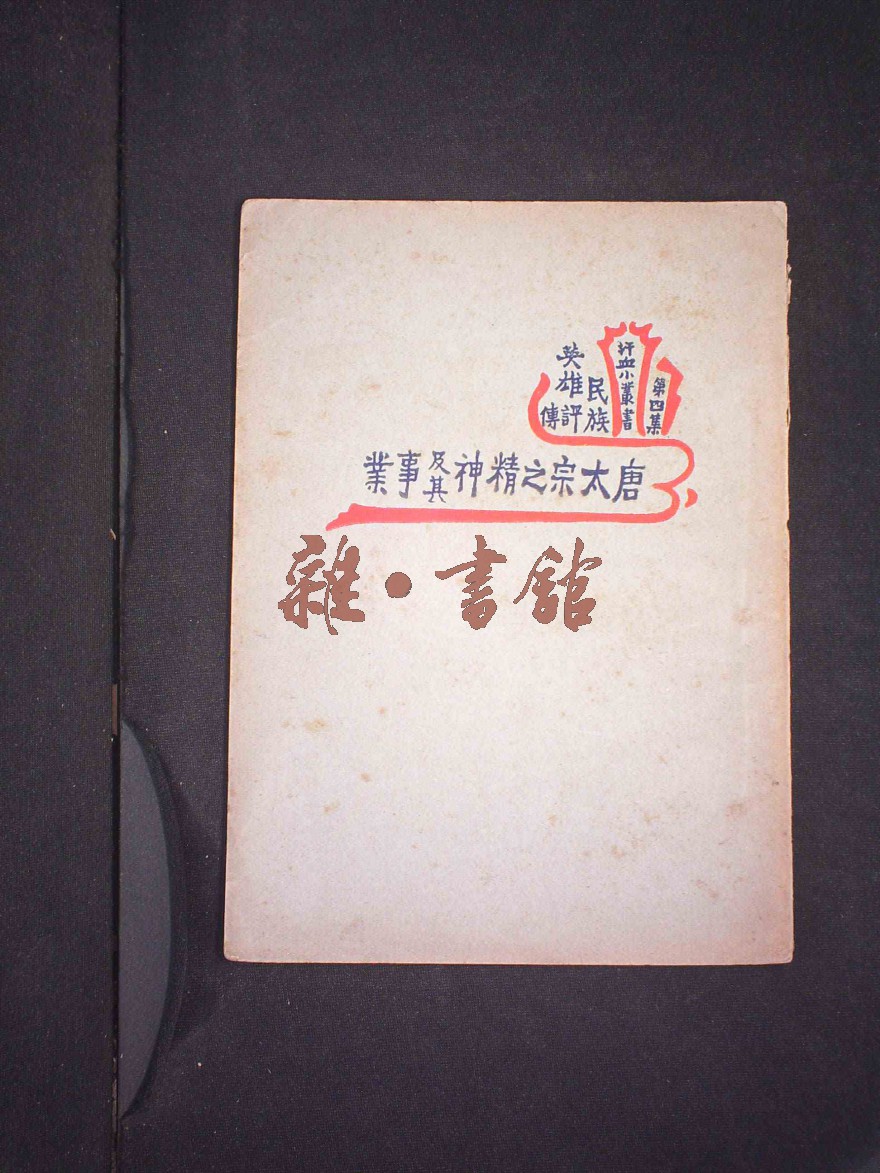 第四集
汗血小叢書
民族
英雄評
傳
唐太宗之精神及其事業
雜·書館